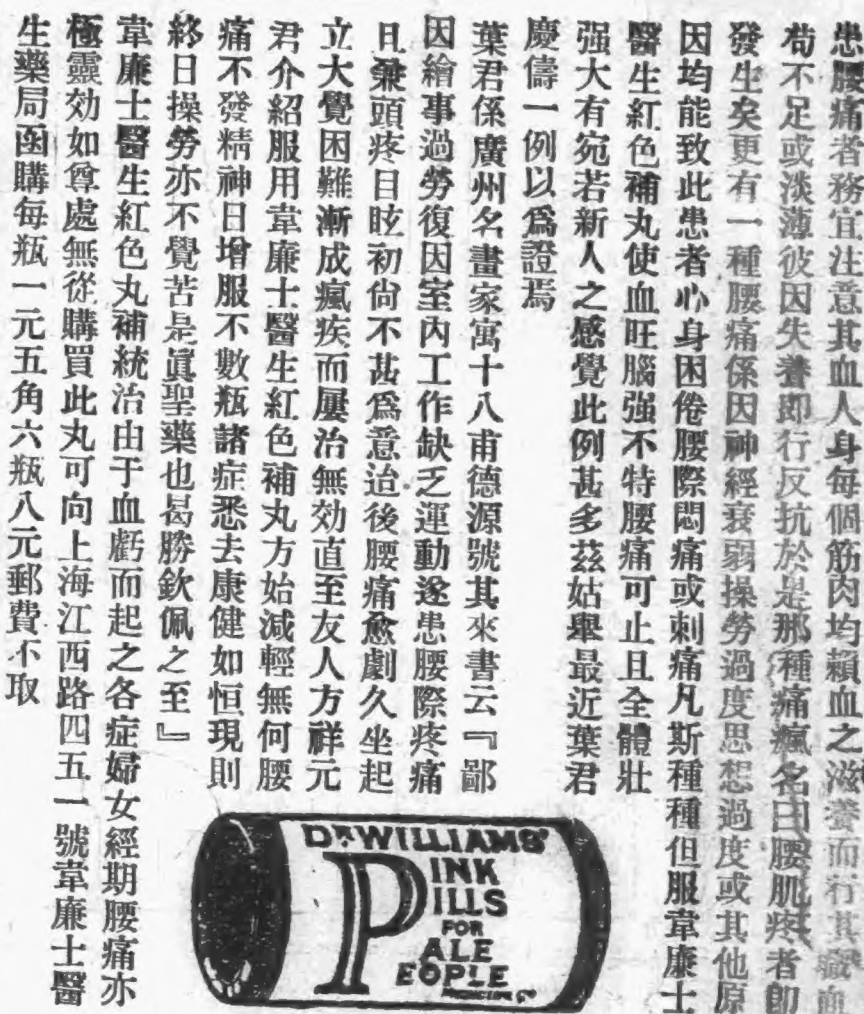 患腰痛者務宜注意其血人身每個筋肉均賴血之滋養而行其職血
苟不足或淡薄彼因失養即行反抗於是那種痛瘋名曰腰肌疼者即
發生矣更有一種腰痛係因神經衰弱操勞過度思想過度或其他原
因均能致此患者心身困倦腰際悶痛或刺痛凡斯種種但服韋廉士
醫生紅色補丸使血旺腦强不特腰痛可止且全體壯
强大有宛若新人之感覺此例甚多茲姑舉最近葉君
慶儔一例以爲證焉
葉君係廣州名畫家寓十八甫德源號其來書云『鄙
因繪事過勞復因室內工作缺乏運動遂患腰際疼痛
且兼頭疼目眩初尙不甚爲意迨後腰痛愈劇久坐起
立大覺困難漸成瘋疾而屢治無効直至友人方祥元
君介紹服用韋廉士醫生紅色補丸方始減輕無何腰
痛不發精神日增服不數瓶諸症悉去康健如恒現則
終日操勞亦不覺苦是眞聖藥也曷勝欽佩之至』
韋廉士醫生紅色丸補統治由于血虧而起之各症婦女經期腰痛亦
極靈効如尊處無從購買此丸可向上海江西路四五一號韋廉士醫
生藥局函購每瓶一元五角六瓶八元郵費不取
DR WILLIAMS'
PINK
PILLS
FOR
PALE
PEOPLE